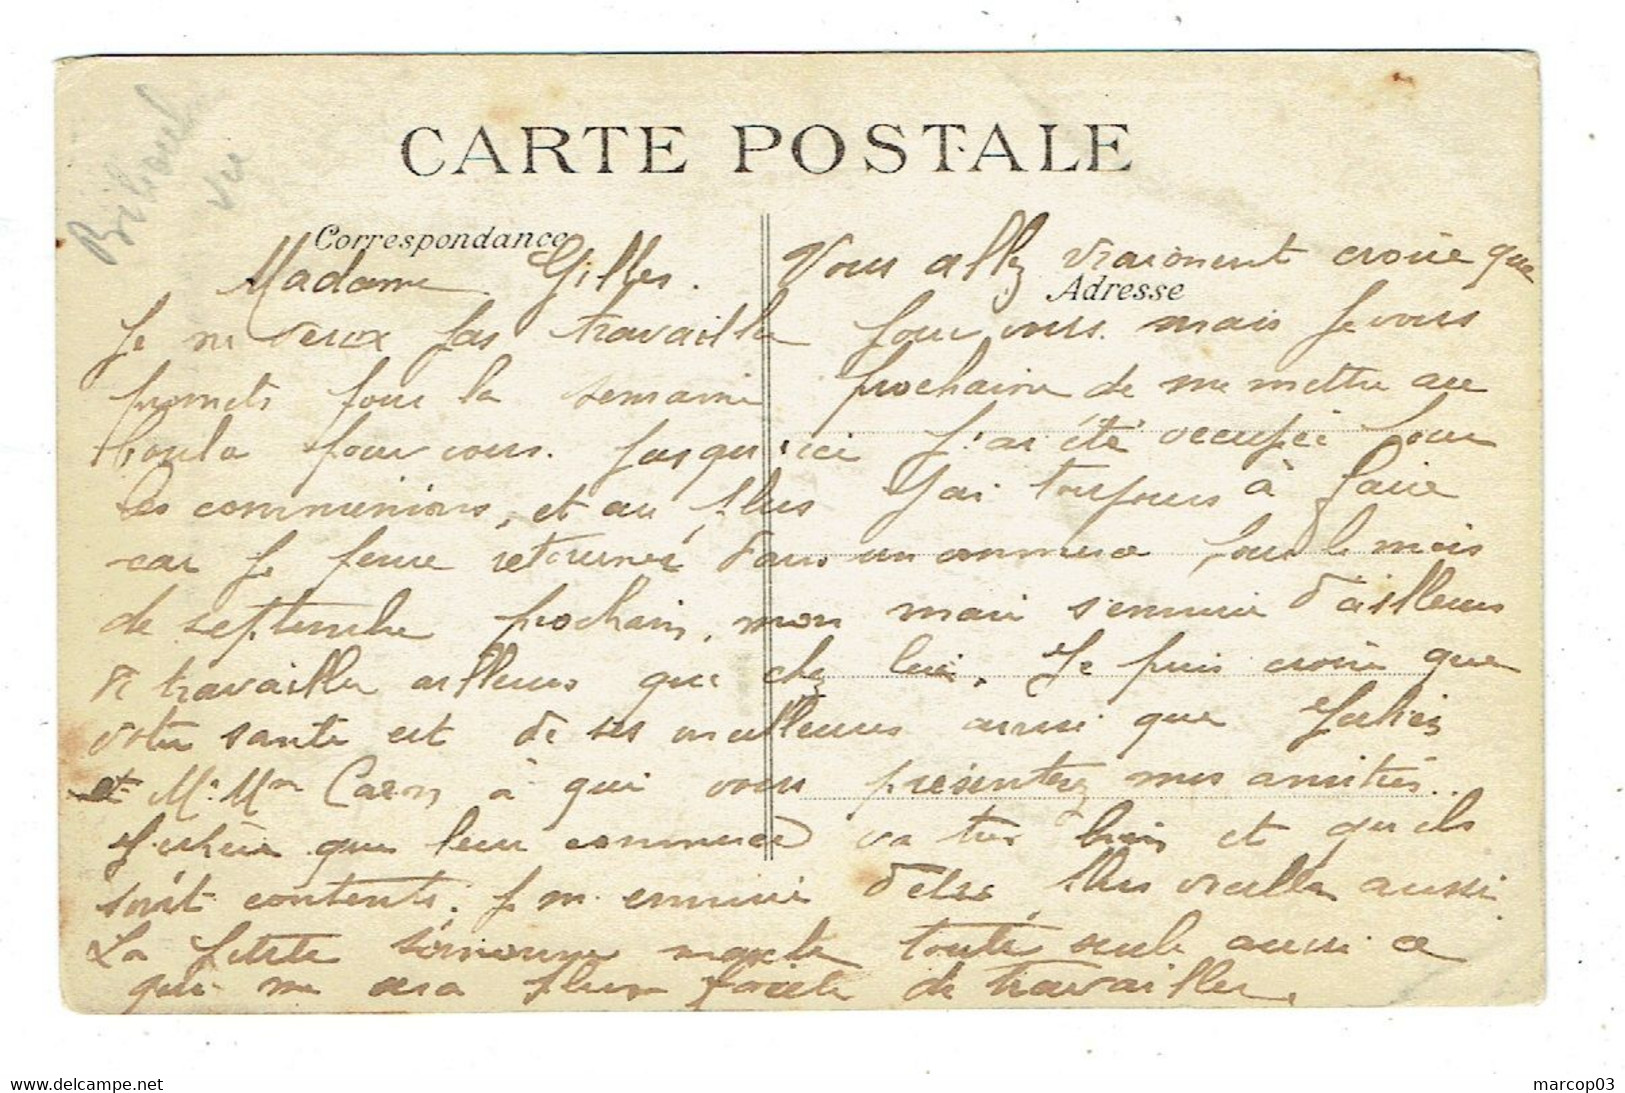 CARTE POSTALE
Correspondance
Adresse
Madame Gilles. Vous allez vraiement croire que
Je ne veux pas travaille pour vous. mais Je vous
promets pour la semaine prochaine de me mettre au
boulo pour vous. Jusqu'ici J'ai été occupée pour
les communions, et au plus J'ai toujours à faire
car Je pense retourner dans un commerce pour le mois
de septembre prochain, mon mari s'ennuie d'ailleurs
de travailler ailleurs que chez lui. Je puis croire que
votre santé est de ses meilleures aussi que
et Mr. Mme Caen à qui vous présenterez mes amitiés.
J'espère que leur commerce va très bien et qu'ils
sont contents. Je m'ennuie d'elle plus vieille aussi.
La petite Simonne marche toute seule aussi ce
qui me sera plus facile de travailler.
www.delcampe.net
marcop03